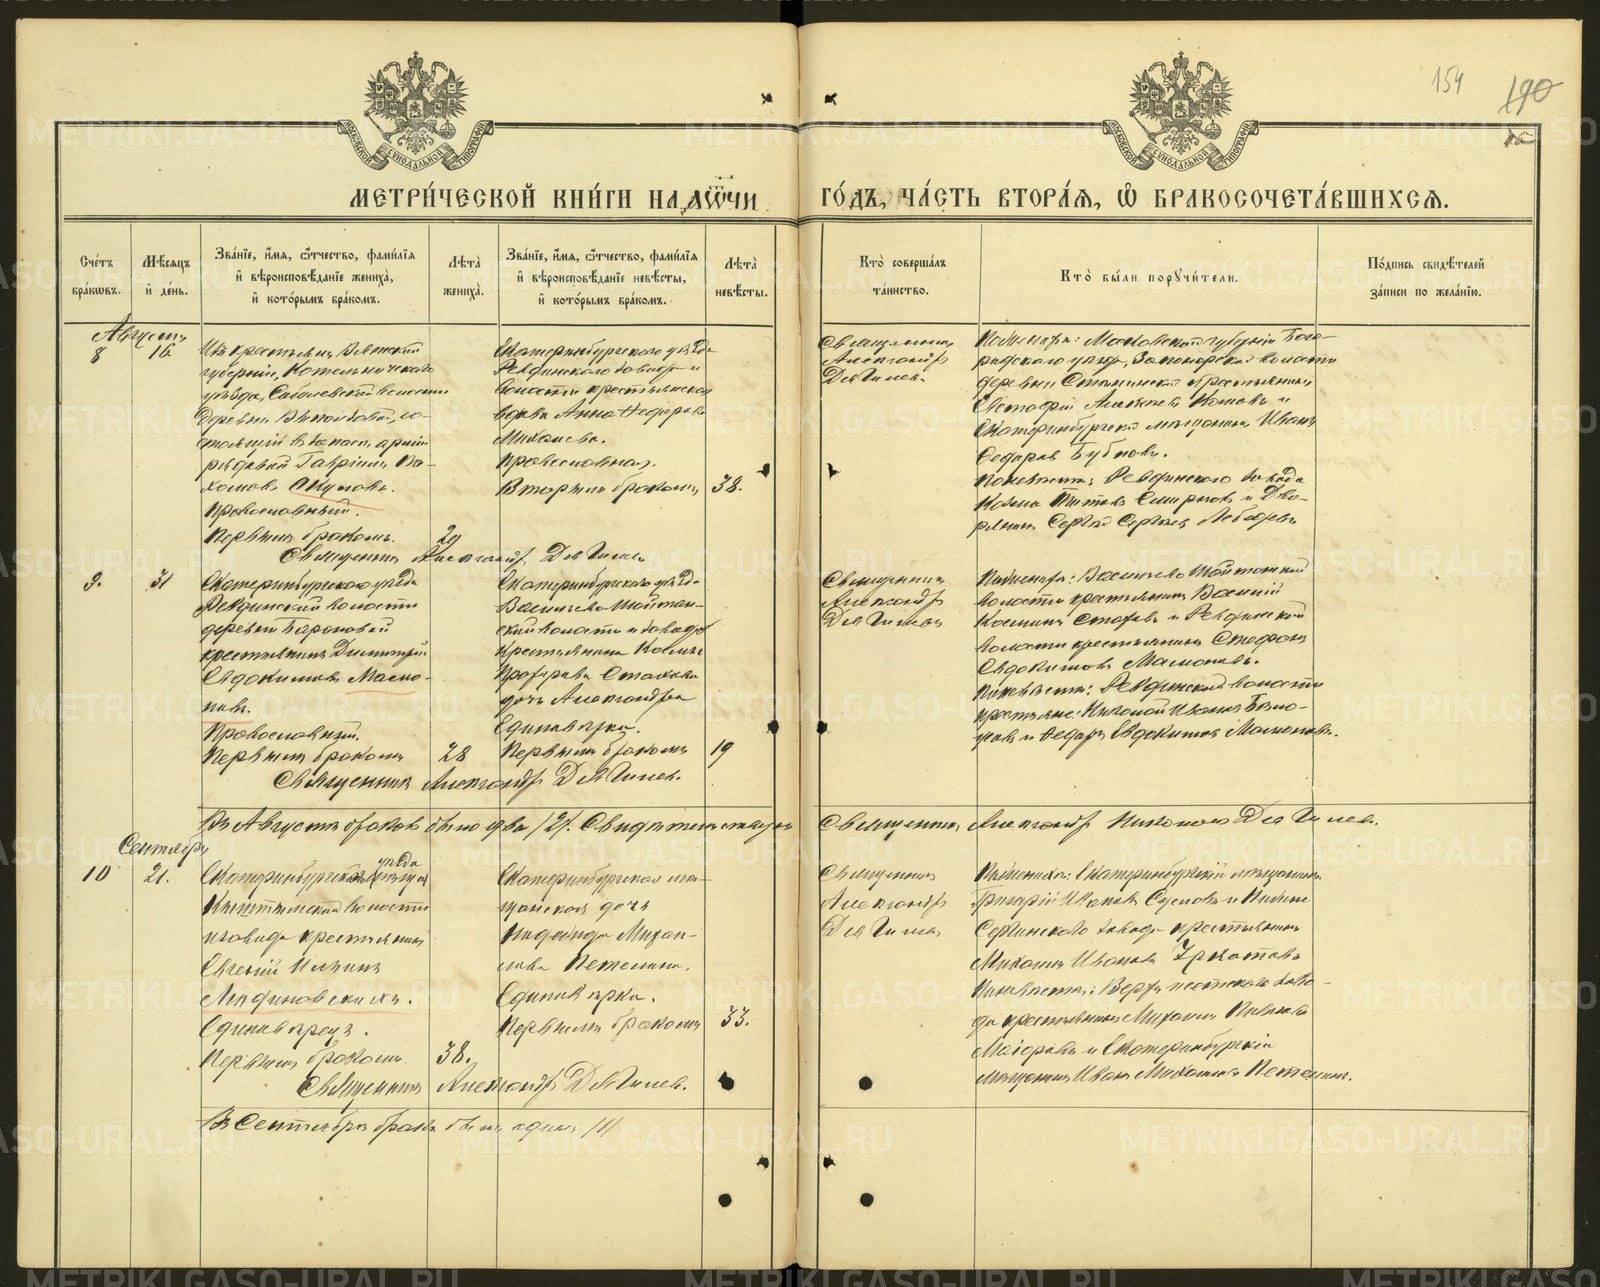 154
190
МОСКОВСКОЙ СΥНОДАЛЬНОЙ ТИПОГРАФІИ
МОСКОВСКОЙ СΥНОДАЛЬНОЙ ТИПОГРАФІИ
МЕТРИ́ЧЕСКОЙ КНИ́ГИ НА ҂АѾЧИ ГО́ДЪ, ЧА́СТЬ ВТОРА́Ѧ, Ѽ БРАКОСОЧЕТА́ВШИХСѦ.
Сче́тъ бра́кѡвъ.
Мѣ́сѧцъ и҆ де́нь.
Зва́нїе, и҆́мѧ, ѻ҆́тчество, фами́лїѧ и҆ вѣроисповѣ́данїе жениха̀, и҆ кото́рымъ бра́комъ.
Лѣта̀ жениха̀.
Зва́нїе, и҆́мѧ, ѻ҆́тчество, фами́лїѧ и҆ вѣроисповѣ́данїе невѣ́сты, и҆ кото́рымъ бра́комъ.
Лѣта̀ невѣ́сты.
Кто̀ соверша́лъ та́инство.
Кто̀ бы́ли порꙋчи́тели.
По́дпись свидѣ́телей за́писи по жела́нїю.
Августъ
8
16
Изъ крестьянъ Вятской
губерніи, Котельническаго
уѣзда,
волости
деревни
со-
стоящій въ запасѣ арміи
рядовой Гавріилъ Ва-
хомовъ Окуловъ.
Православный.
Первымъ бракомъ.
29
Екатеринбургскаго уѣзда
Ревдинскаго завода и
волости крестьянская
вдова Анна Ѳедорова
Михалева.
Православная.
Вторымъ бракомъ
38.
Священникъ
Александръ
Дягилевъ
По женихѣ: Московской губерніи Бого-
родскаго уѣзда, Запонорской волости
деревни
крестьянинъ
Евстафій Алексѣевъ
и
Екатеринбургскій мѣщанинъ Иванъ
Ѳедоровъ Бубновъ.
По невѣстѣ: Ревдинскаго завода
Козма Титовъ Смирновъ и Дво-
рянинъ Сергѣй Сергѣевъ Лебедевъ
Священникъ Александръ Дягилевъ
9.
31
Екатеринбургскаго уѣзда
Ревдинской волости
деревни Барановой
крестьянинъ Димитрій
Евдокимовъ Мамо-
новъ.
Православный.
Первымъ бракомъ
28
Екатеринбургскаго уѣзда
Васильево Шайтан-
ской волости и завода
крестьянина Космы
Прохорова Стахова
дочь Александра
Единовѣрка.
Первымъ бракомъ
19
Священникъ
Александръ
Дягилевъ
По женихѣ: Васильево Шайтанской
волости крестьянинъ Василій
Косминъ Стаховъ и Ревдинской
волости крестьянинъ Стефанъ
Евдокимовъ Мамоновъ.
По невѣстѣ: Ревдинской волости
крестьяне: Николай Ивановъ Бѣло-
усовъ и Ѳедоръ Евдокимовъ Мамоновъ.
Священникъ Александръ Дягилевъ.
Въ Августѣ браковъ было два /2/. Свидѣтельствуютъ
Священникъ Александръ Николаевъ Дягилевъ.
Сентябрь
10
21.
Екатеринбургскаго уѣзда
Кыштымской волости
и завода крестьянинъ
Евгеній Ильинъ
Алфиновскихъ.
Единовѣрецъ.
Первымъ бракомъ
38.
Екатеринбургская мѣ-
щанская дочь
Надежда Михаи-
лова Петелина.
Единовѣрка.
Первымъ бракомъ
33.
Священникъ
Александръ
Дягилевъ
По женихѣ: Екатеринбургскій мѣщанинъ
Григорій Ивановъ Сусловъ и Нижне
Сергинскаго завода крестьянинъ
Михаилъ Ивановъ
По невѣстѣ: Верхъ Исетскаго заво-
да крестьянинъ Михаилъ
Маіоровъ и Екатеринбургскій
мѣщанинъ Иванъ Михаиловъ Петелинъ.
Священникъ Александръ Дягилевъ.
Въ Сентябрѣ бракъ былъ одинъ /1/
METRIKI.GASO-URAL.RU